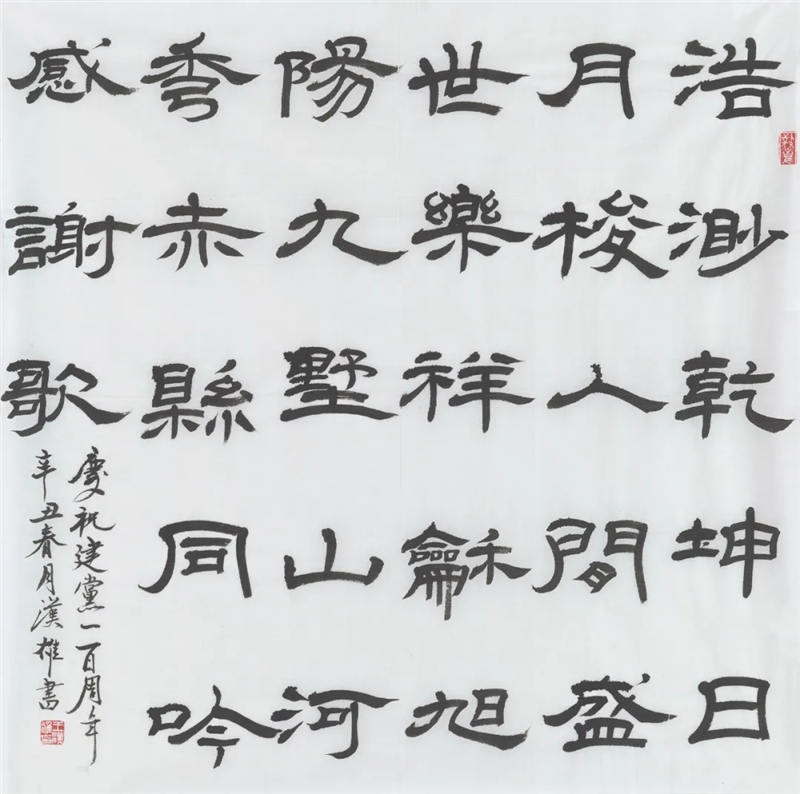 浩渺乾坤日
月梭人間盛
世樂祥龢旭
陽九墅山河
秀赤縣同吟
感謝歌
慶祝建黨一百周年
辛丑春月漢雄書